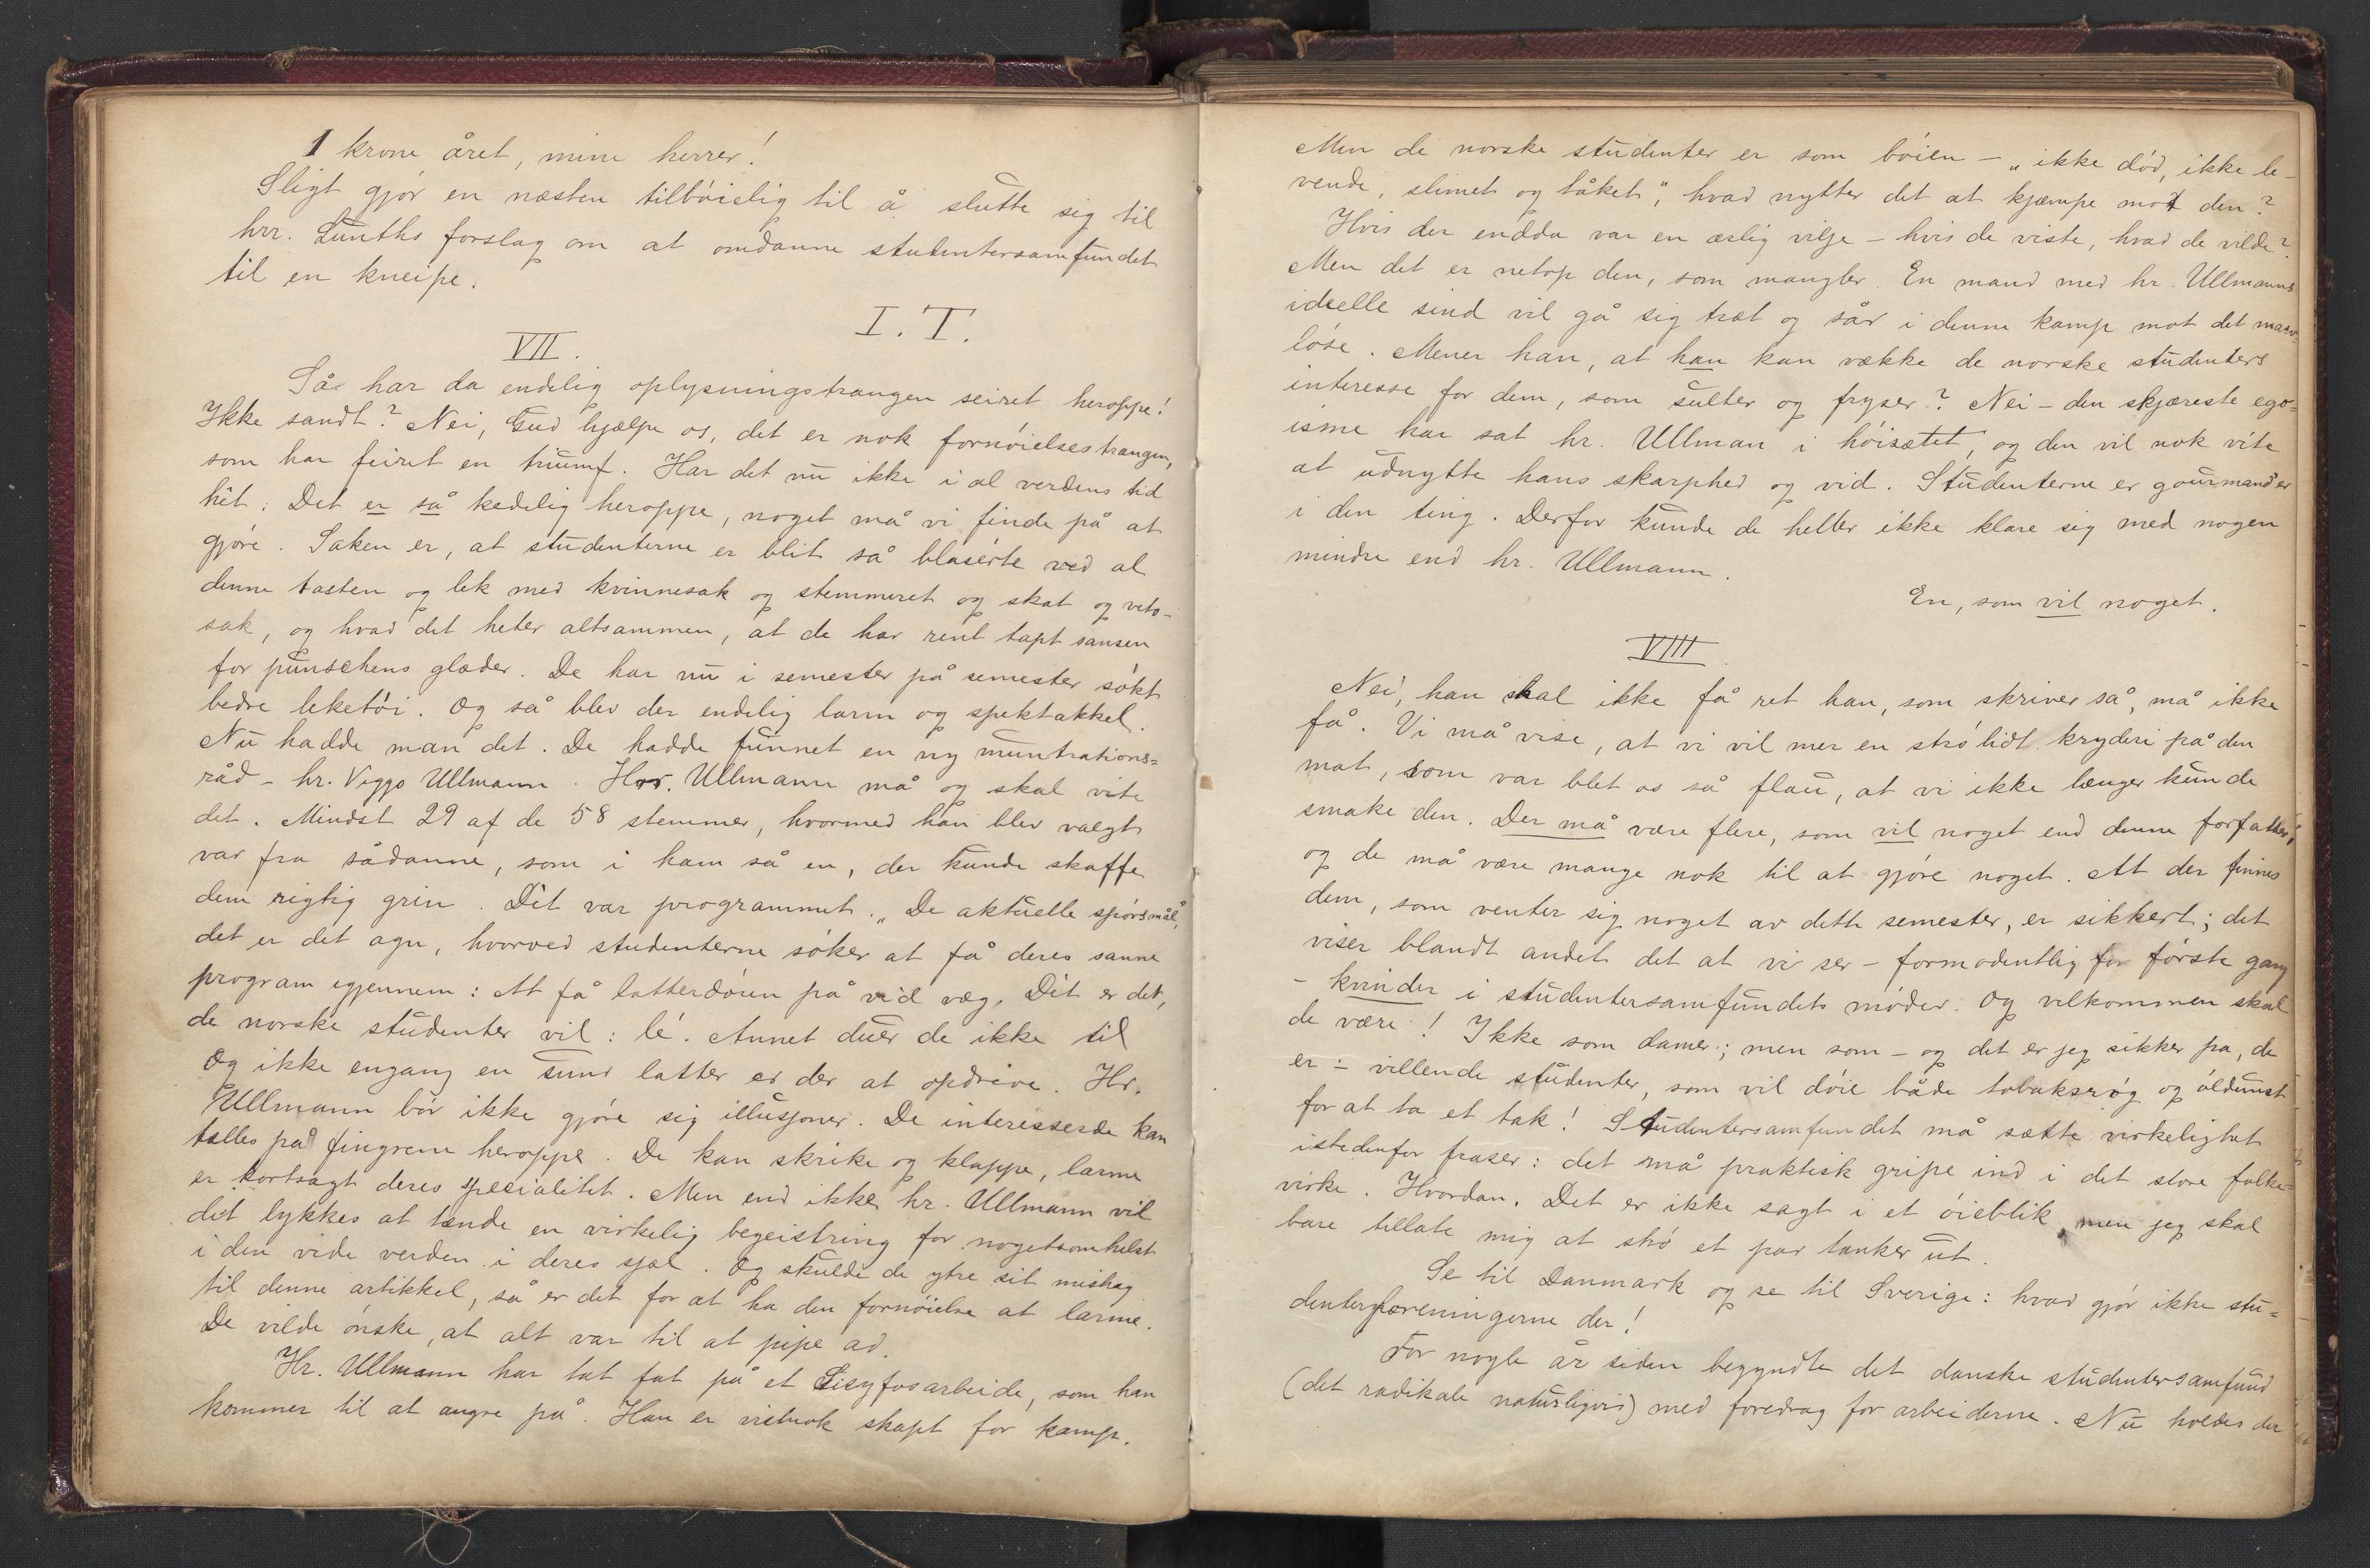 1 krone året, mine herrer!
Sligt gjør en næsten tilbøielig til å slutte sig til
hrr. Lunths forslag om at omdanne studentersamfundet
til en kneipe.
I. T.
VII.
Så har da endelig oplysningstrangen seiret heroppe!
Ikke sandt? Nei, Gud hjælpe os, det er nok fornøielsestrangen,
som har feiret en triumf. Har det nu ikke i al verdens tid
hêt: Det er så kedelig heroppe, noget må vi finde på at
gjøre. Saken er, at studenterne er blit så blaserte ved al
denne tasten og lek med kvinnesak og stemmeret og skat og veto-
sak, og hvad det heter altsammen, at de har rent tapt sansen
for punschens glæder. De har nu i semester på semester søkt
bedre leketøi. Og så blev der endelig larm og spektakkel.
Nu hadde man det. De hadde funnet en ny muntrations=
råd - hr. Viggo Ullmann. Hrr. Ullmann må og skal vite
det. Mindst 29 af de 58 stemmer, hvormed han blev valgt
var fra sådanne, som i ham så en, der kunde skaffe
dem rigtig grin. Dét var programmet. „De aktuelle spørsmål",
det er det agn, hvorved studenterne søker at få deres sanne
program igjennem: At få latterdøren på vid væg. Dét er det,
de norske studenter vil: lé. Annet duer de ikke til
Og ikke engang en sund latter er der at opdrive. Hr.
Ullmann bør ikke gjøre sig illusjoner. De interesserde kan
tælles på fingrene heroppe. De kan skrike og klappe, larme
er kortsagt deres specialitet. Men end ikke hr. Ullmann vil
det lykkes at tænde en virkelig begeistring for nogetsomhelst
i den vide verden i deres sjæl. Og skulde de ytre sit mishag
til denne artikkel, så er det for at ha den fornøielse at larme.
De vilde ønske, at alt var til at pipe ad.
Hr. Ullmann har tat fat på et Sisyfosarbeide, som han
kommer til at angre på. Han er vistnok skapt for kamp.
Men de norske studenter er som bøien - „ikke død, ikke le-
vende, slimet og tåket", hvad nytter det at kjæmpe mot den?
Hvis der endda var en ærlig vilje - hvis de viste, hvad de vilde?
Men det er netop den, som mangler. En mand med hr. Ullmanns
ideelle sind vil gå sig træt og sår i denne kamp mot det marv-
løse. Mener han, at han kan vække de norske studenters
interesse for dem, som sulter og fryser? Nei - den skjæreste ego=
isme har sat hr. Ullman i høisætet, og den vil nok vite
at udnytte hans skarphed og vid. Studenterne er gourmand'er
i den ting. Derfor kunde de heller ikke klare sig med nogen
mindre end hr. Ullmann.
En, som vil noget.
VIII
Nei, han skal ikke få ret han, som skriver så, må ikke
få. Vi må vise, at vi vil mer en strø lidt kryderi på den
mat, som var blet os så flau, at vi ikke længer kunde
smake den. Der må være flere, som vil noget end denne forfatter;
og de må være mange nok til at gjøre noget. At der finnes
dem, som venter sig noget av dette semester, er sikkert; det
viser blandt andet det at vi ser - formodentlig for første gang
- kvinder i studentersamfundets møder. Og velkommen skal
de være! Ikke som damer; men som - og det er jeg sikker pa, de
er - villende studenter, som vil døie både tobaksrøg og øldunst
for at ta et tak! Studentersamfundet må sætte virkelighet
istedenfor fraser: det må praktisk gripe ind i det store folke=
virke. Hvordan. Det er ikke sagt i et øieblik, men jeg skal
bare tillate mig at strø et par tanker ut.
Se til Danmark og se til Sverige: hvad gjør ikke stu=
denterforeningerne der!
For nogle år siden begyndte det danske studentersamfund
(det radikale naturligvis) med foredrag for arbeiderne. Nu holdes der